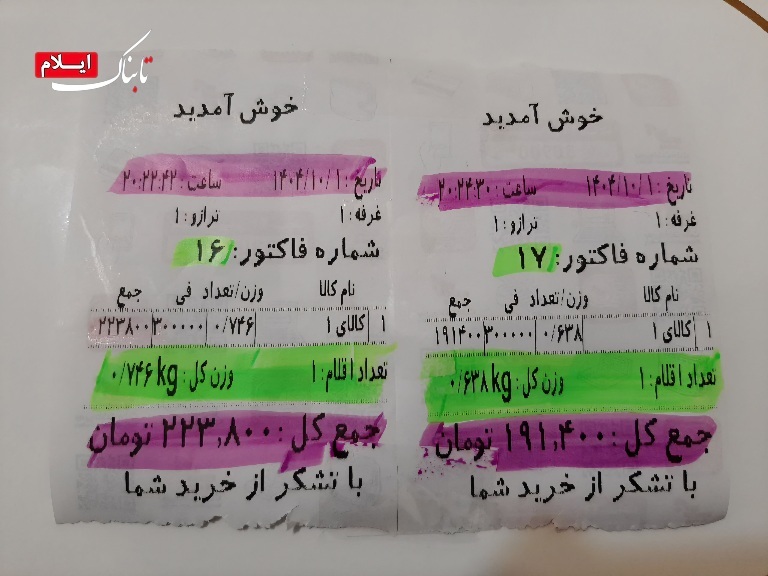 تابناک ایلام
خوش آمدید
تاریخ : ۱۴۰۴/۱۰/۱ ساعت : ۲۰:۲۲:۴۲
غرفه: ۱ ترازو: ۱
شماره فاکتور: ۱۶
نام کالا وزن/تعداد فی جمع
۱ کالای ۱ ۰/۷۴۶ ۳۰۰۰۰۰ ۲۲۳۸۰۰
تعداد اقلام: ۱ وزن کل: ۰/۷۴۶ kg
جمع کل : ۲۲۳,۸۰۰ تومان
با تشکر از خرید شما
خوش آمدید
تاریخ : ۱۴۰۴/۱۰/۱ ساعت : ۲۰:۲۴:۳۰
غرفه: ۱ ترازو: ۱
شماره فاکتور: ۱۷
نام کالا وزن/تعداد فی جمع
۱ کالای ۱ ۰/۶۳۸ ۳۰۰۰۰۰ ۱۹۱۴۰۰
تعداد اقلام: ۱ وزن کل: ۰/۶۳۸ kg
جمع کل : ۱۹۱,۴۰۰ تومان
با تشکر از خرید شما